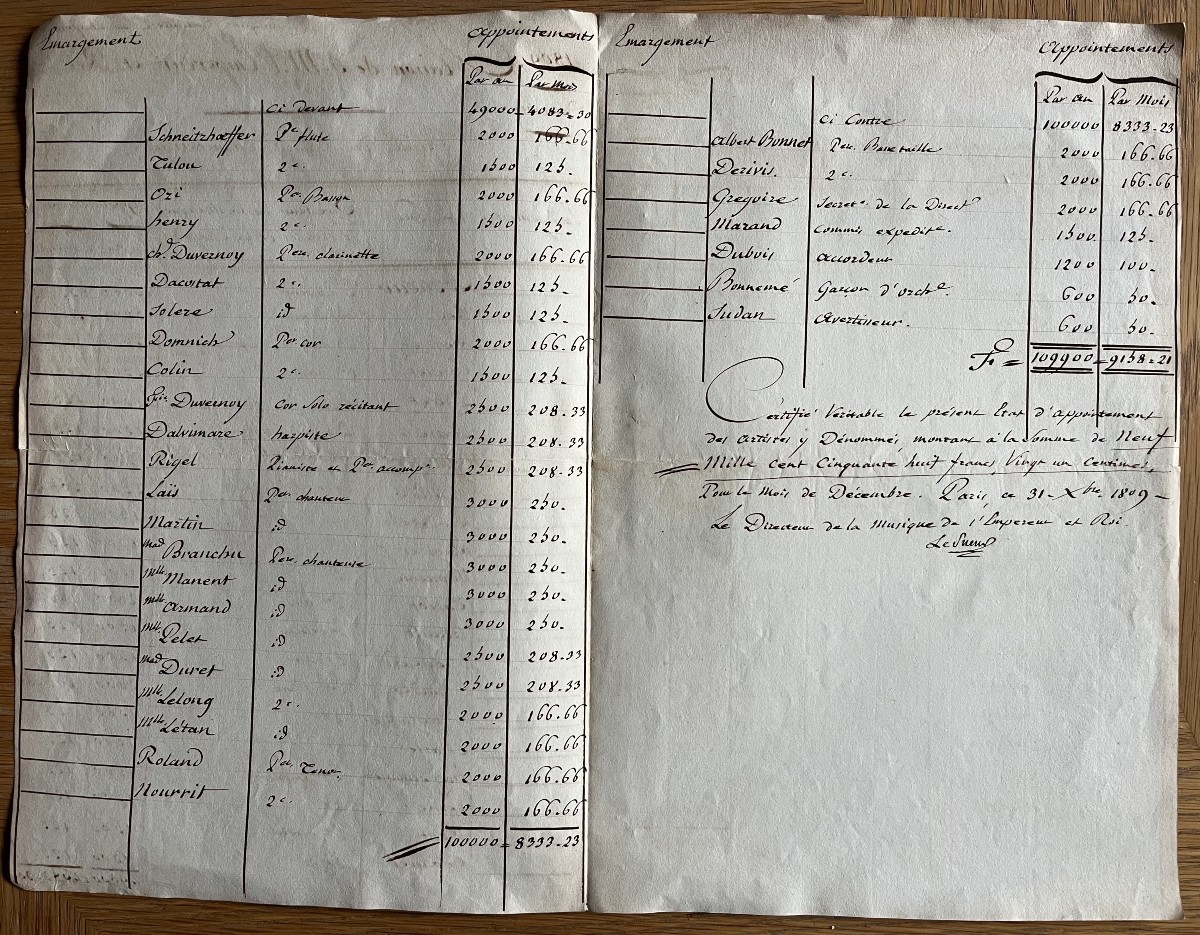 Emargement
appointements
Par an Par Mois
ci devant 49000 = 4083 = 30
Schneitzhoeffer Per flute 2000 166-66
Tulou 2e. 1500 125-
Ozi Per Basson 2000 166-66
henry 2e. 1500 125-
ch. Duvernoy Pere. clarinette 2000 166-66
Dacostat 2e. 1500 125-
Solere id 1500 125-
Domnich Per cor 2000 166-66
Colin 2e. 1500 125-
Duvernoy cor Solo récitant 2500 208-33
Dalvimare harpiste 2500 208-33
Rigel Pianiste et Per accompr. 2500 208-33
Laïs Per chanteur 3000 250-
Martin id 3000 250-
mad Branchu Pere. chanteuse 3000 250-
Mlle Manent id 3000 250-
mlle. armand id 3000 250-
Mlle Pelet id 2500 208-33
mad Duret id 2500 208-33
Mlle Lelong 2e. 2000 166-66
Mlle Létan id 2000 166-66
Roland Per Tenor 2000 166-66
Nourrit 2e. 2000 166-66
100000 = 8333-23
Emargement
appointements
Par an Par Mois
ci Contre 100000 8333-23
albert Bonnet Pere. Bassetaille 2000 166-66
Derivis 2e. 2000 166-66
Gregoire secrete. de la Directn 2000 166-66
Marand commis expedite. 1500 125-
Dubois accordeur 1200 100-
Bonnemé garçon d'orche. 600 50-
Sudan avertisseur. 600 50-
F = 109900 = 9158 = 21
Certifié Véritable le présent Etat d'appointement
des artistes y Dénommés montant à la Somme de Neuf
Mille cent Cinquante huit francs Vingt un Centimes,
Pour le Mois de Décembre. Paris, ce 31 - Xbre. 1809 -
Le Directeur de la Musique de l'Empereur et Roi.
Le Sueur